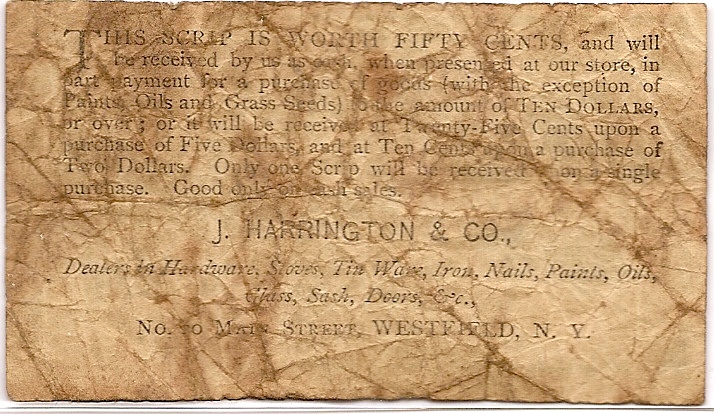 THIS SCRIP IS WORTH FIFTY CENTS, and will
be received by us as cash, when presented at our store, in
part payment for a purchase of goods (with the exception of
Paints, Oils and Grass Seeds) to the amount of TEN DOLLARS,
or over; or it will be received at Twenty-Five Cents upon a
purchase of Five Dollars, and at Ten Cents upon a purchase of
Two Dollars. Only one Scrip will be received upon a single
purchase. Good only on cash sales.
J. HARRINGTON & CO.,
Dealers in Hardware, Stoves, Tin Ware, Iron, Nails, Paints, Oils,
Glass, Sash, Doors, &c.,
No. MAIN STREET, WESTFIELD, N. Y.